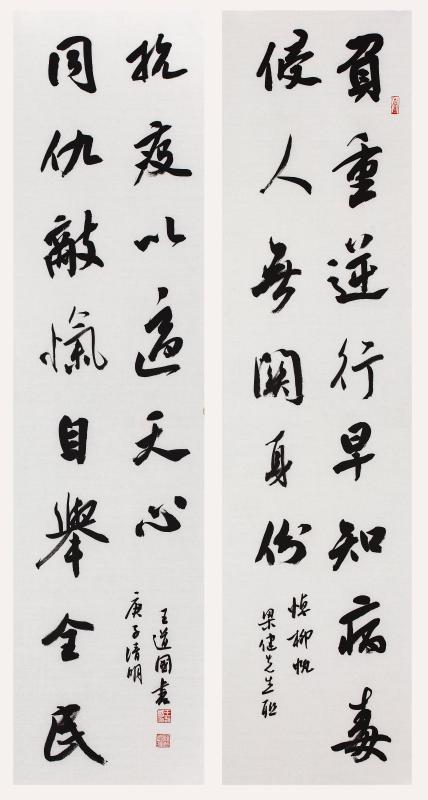 負重逆行早知病毒
侵人無關身份
悼柳帆
梁健先生聯
同仇敵愾自舉全民
抗疫以適天心
庚子清明
王道國書